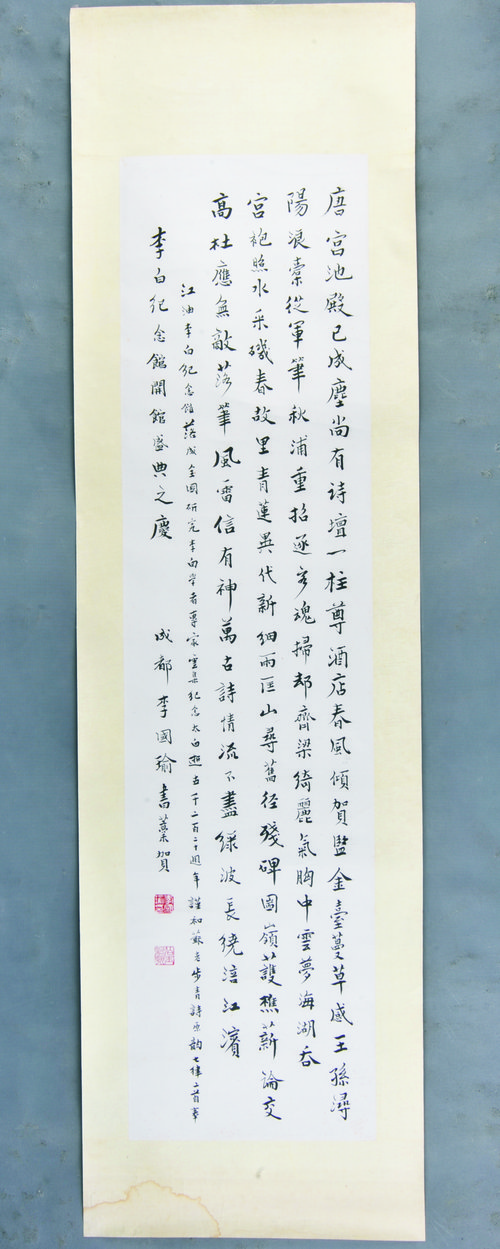 唐宫池殿已成塵尚有诗壇一柱尊酒店春風傾賀監金臺蔓草感王孫潯
陽浪藁從軍筆秋浦重招逐客魂掃却齊梁綺麗氣胸中雲夢海湖吞
宫袍照水采磯春故里青蓮異代新細雨匡山尋舊径殘碑圌嶺護樵薪論交
高杜應無敵落筆風雷信有神萬古詩情流不盡绿波長繞涪江濱
江油李白纪念館落成全國研究李白学者專家雲集纪念太白逝世一千二百二十週年謹和蘇老步青詩原韵七律二首奉
李白纪念館開館盛典之慶
成都李國瑜書藁賀